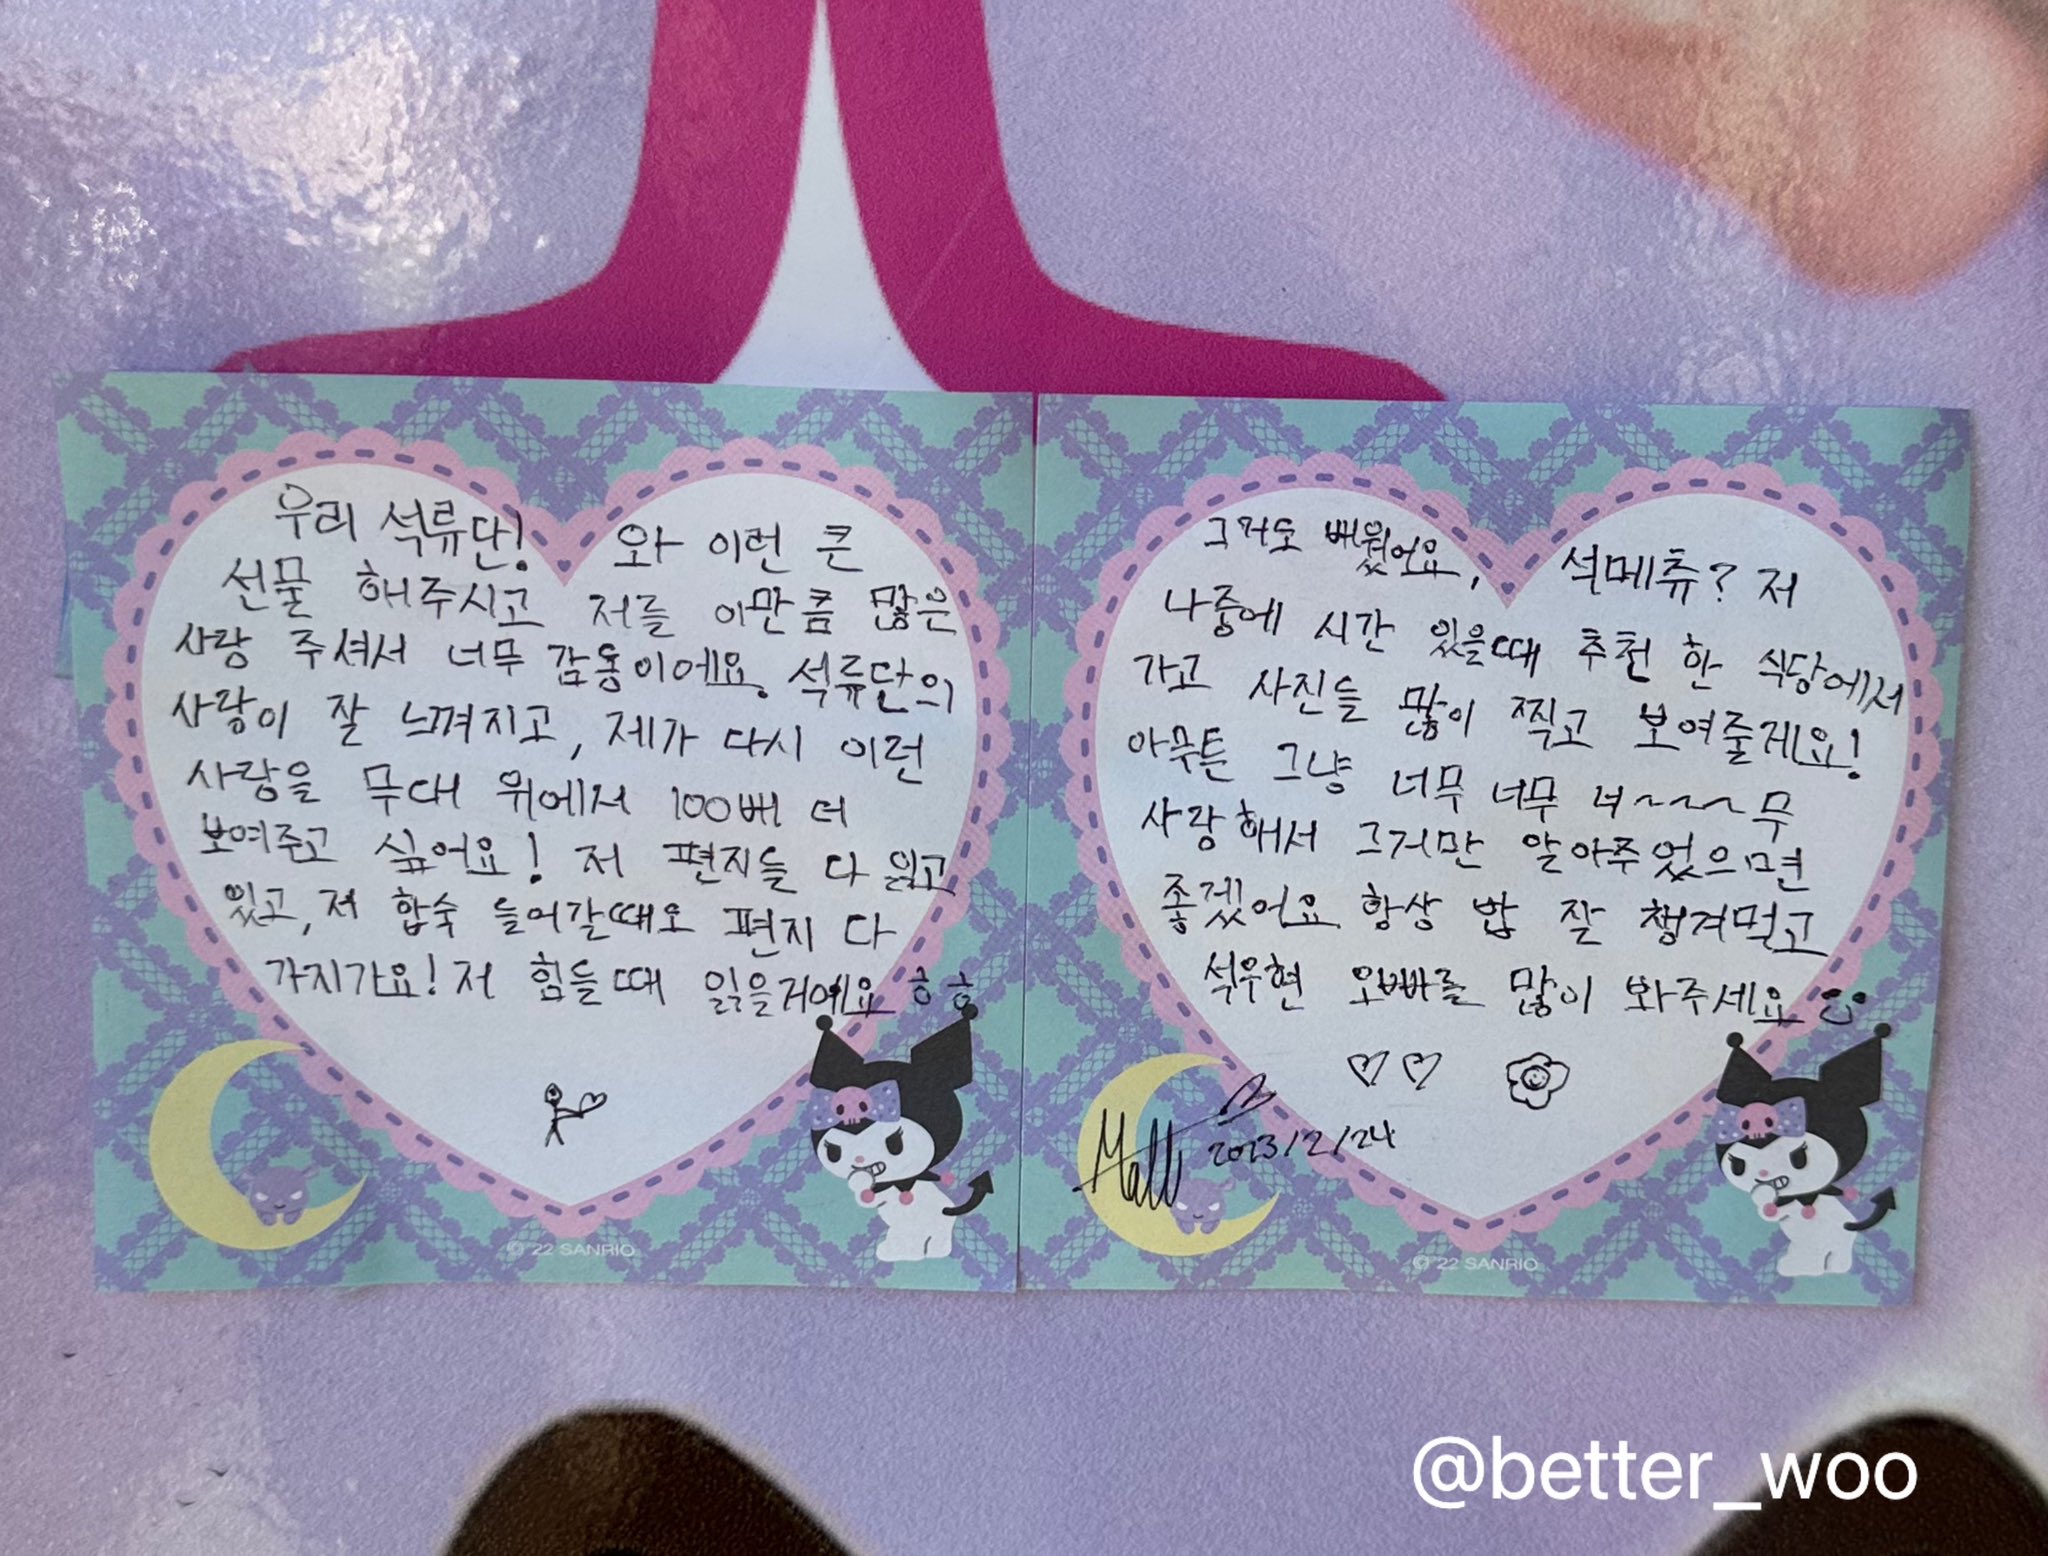 우리 석류단! 와 이런 큰
선물 해주시고 저를 이만큼 많은
사랑 주셔서 너무 감동이에요. 석류단의
사랑이 잘 느껴지고, 제가 다시 이런
사랑을 무대 위에서 100배 더
보여주고 싶어요! 저 편지들 다 읽고
있고, 저 합숙 들어갈때도 편지 다
가지가요! 저 힘들때 읽을거예요 ㅎㅎ
© '22 SANRIO
그거도 배웠어요, 석메츄? 저
나중에 시간 있을때 추천 한 식당에서
가고 사진들 많이 찍고 보여줄게요!
아무튼 그냥 너무 너무 너~~~~무
사랑해서 그거만 알아주었으면
좋겠어요 항상 밥 잘 챙겨먹고
석우현 오빠를 많이 봐주세요
Matt 2023/2/24
© '22 SANRIO
@better_woo